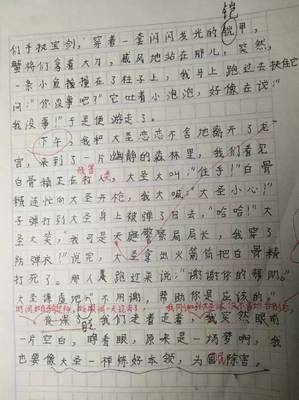 铠
们手执宝剑，穿着一套闪闪发光的甲，
蟹将们拿着大刀，威风地站在那儿，突然，
一条小鱼撞在了柱子上，我马上跑过去扶住它
问："你没事吧？"它吐着小泡泡，好像在说："
我没事！"于是便游走了。
下午，我和大圣恋恋不舍地离开了龙
宫，来到了一片幽静的森林里，我们看见
白骨精正在打人，大圣大叫："住手！"白骨
精连忙向大圣开枪，我大喊："大圣小心！"
子弹打到大圣身上被弹了回去，"哈哈！"大
圣大笑，"我可是天庭警察局局长，我穿了
防弹衣！"说完，大圣拿出火箭筒把白骨精
打死了。那人跑过来说："谢谢你的帮助。"
大圣谦虚地"不用谢，帮助你是应该的。"
我们走着走着，我突然眼前
一片空白，睁眼，原来是一场梦啊，我
也要像大圣一样练好本领，为国除害。